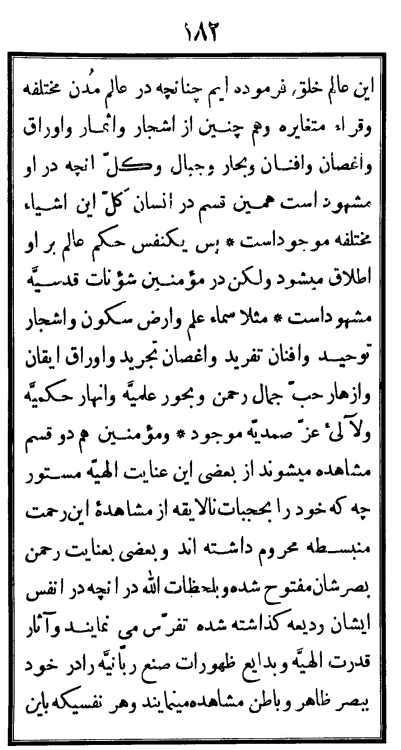 ١٨٢
این عالم خلق فرموده ایم چنانچه در عالم مُدن مختلفه
وقراء متغایره وهم چنین از اشجار واثمار واوراق
واغصان وافنان وبحار وجبال وکلّ انچه در او
مشهود است همین قسم در انسان کلّ این اشیاء
مختلفه موجوداست * پس یکنفس حکم عالم بر او
اطلاق میشود ولکن در مؤمنین شؤنات قدسیّه
مشهوداست * مثلا سماء علم وارض سکون واشجار
توحید وافنان تفرید واغصان تجرید واوراق ایقان
وازهار حبّ جمال رحمن وبحور علمیّه وانهار حکمیّه
ولآلیٔ عزّ صمدیّه موجود * ومؤمنین هم دو قسم
مشاهده میشوند از بعضی این عنایت الهیّه مستور
چه که خود را بحجبات نالایقه از مشاهدهٔ این رحمت
منبسطه محروم داشته اند وبعضی بعنایت رحمن
بصرشان مفتوح شده وبلحظات الله در انچه در انفس
ایشان ودیعه گذاشته شده تفرّس می نمایند وآثار
قدرت الهیّه وبدایع ظهورات صنع ربّانیّه رادر خود
ببصر ظاهر وباطن مشاهده مینمایند وهر نفسیکه باین